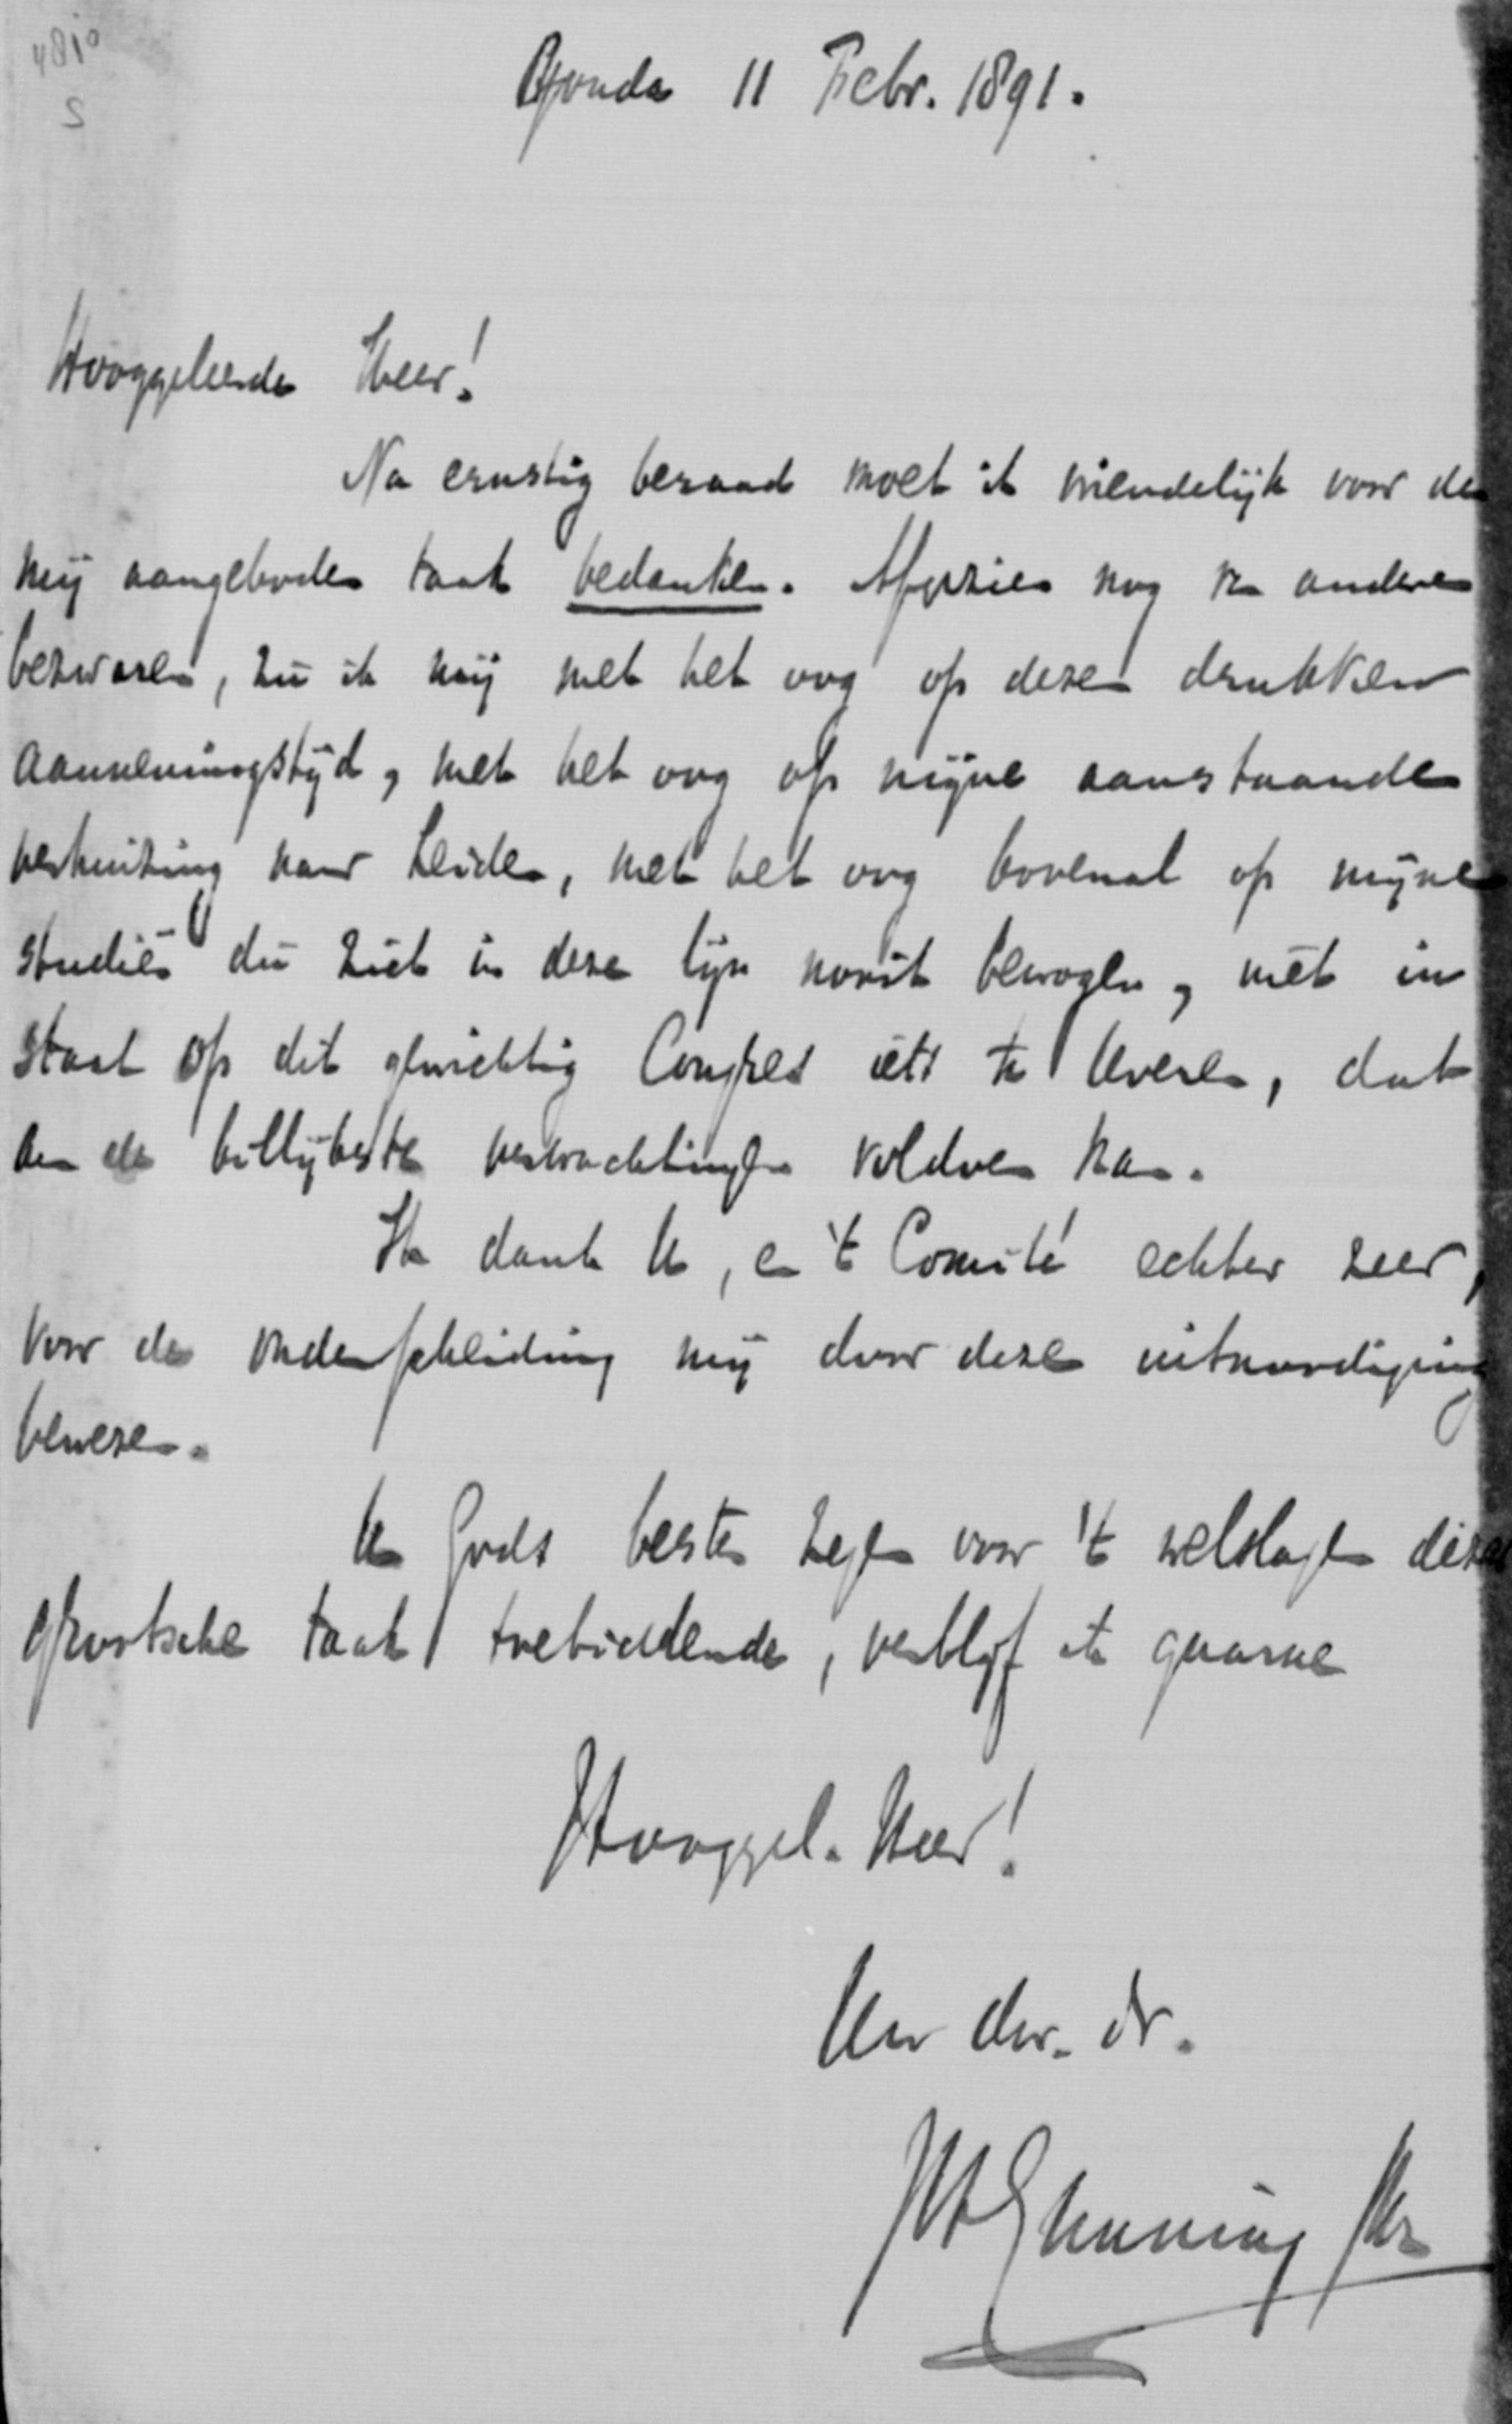 4810
S
Gouda 11 Febr. 1891.
Hooggeleerde Heer!
Na ernstig beraad moet ik vriendelijk voor de
mij aangeboden taak bedanken. Afgezien nog van andere
bezwaren, zie ik mij met het oog op dezen drukken
aannemingstijd, met het oog op mijne aanstaande
verhuizing naar Leiden, met het oog bovenal op mijne
studiën die zich in deze lijn nooit bewogen, niet in
staat op dit gewichtig Congres iets te leveren, dat
aan de billijkste verwachtingen voldoen kan.
Ik dank U, en 't Comité echter zeer,
voor de onderscheiding mij door deze uitnoodiging
bewezen.
U Gods besten zegen voor 't welslagen dezer
grootsche taak toebiddende, verblijf ik gaarne
Hooggel. Heer!
Uw dw. dr.
JH Gunning JHz